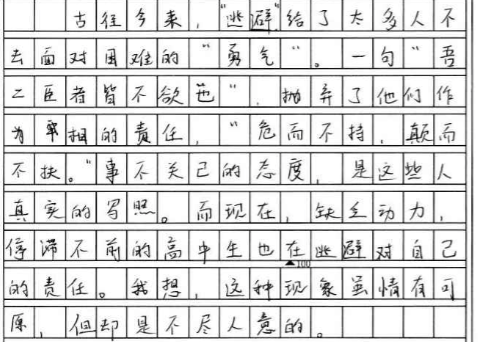 古往今来，"逃避"给了太多人不
去面对困难的"勇气"。一句"吾
二臣者皆不欲也"，抛弃了他们作
为宰相的责任，"危而不持，颠而
不扶。"事不关己的态度，是这些人
真实的写照。而现在，缺乏动力，
停滞不前的高中生也在逃避对自己
▲100
的责任。我想，这种现象虽情有可
愿，但却是不尽人意的。